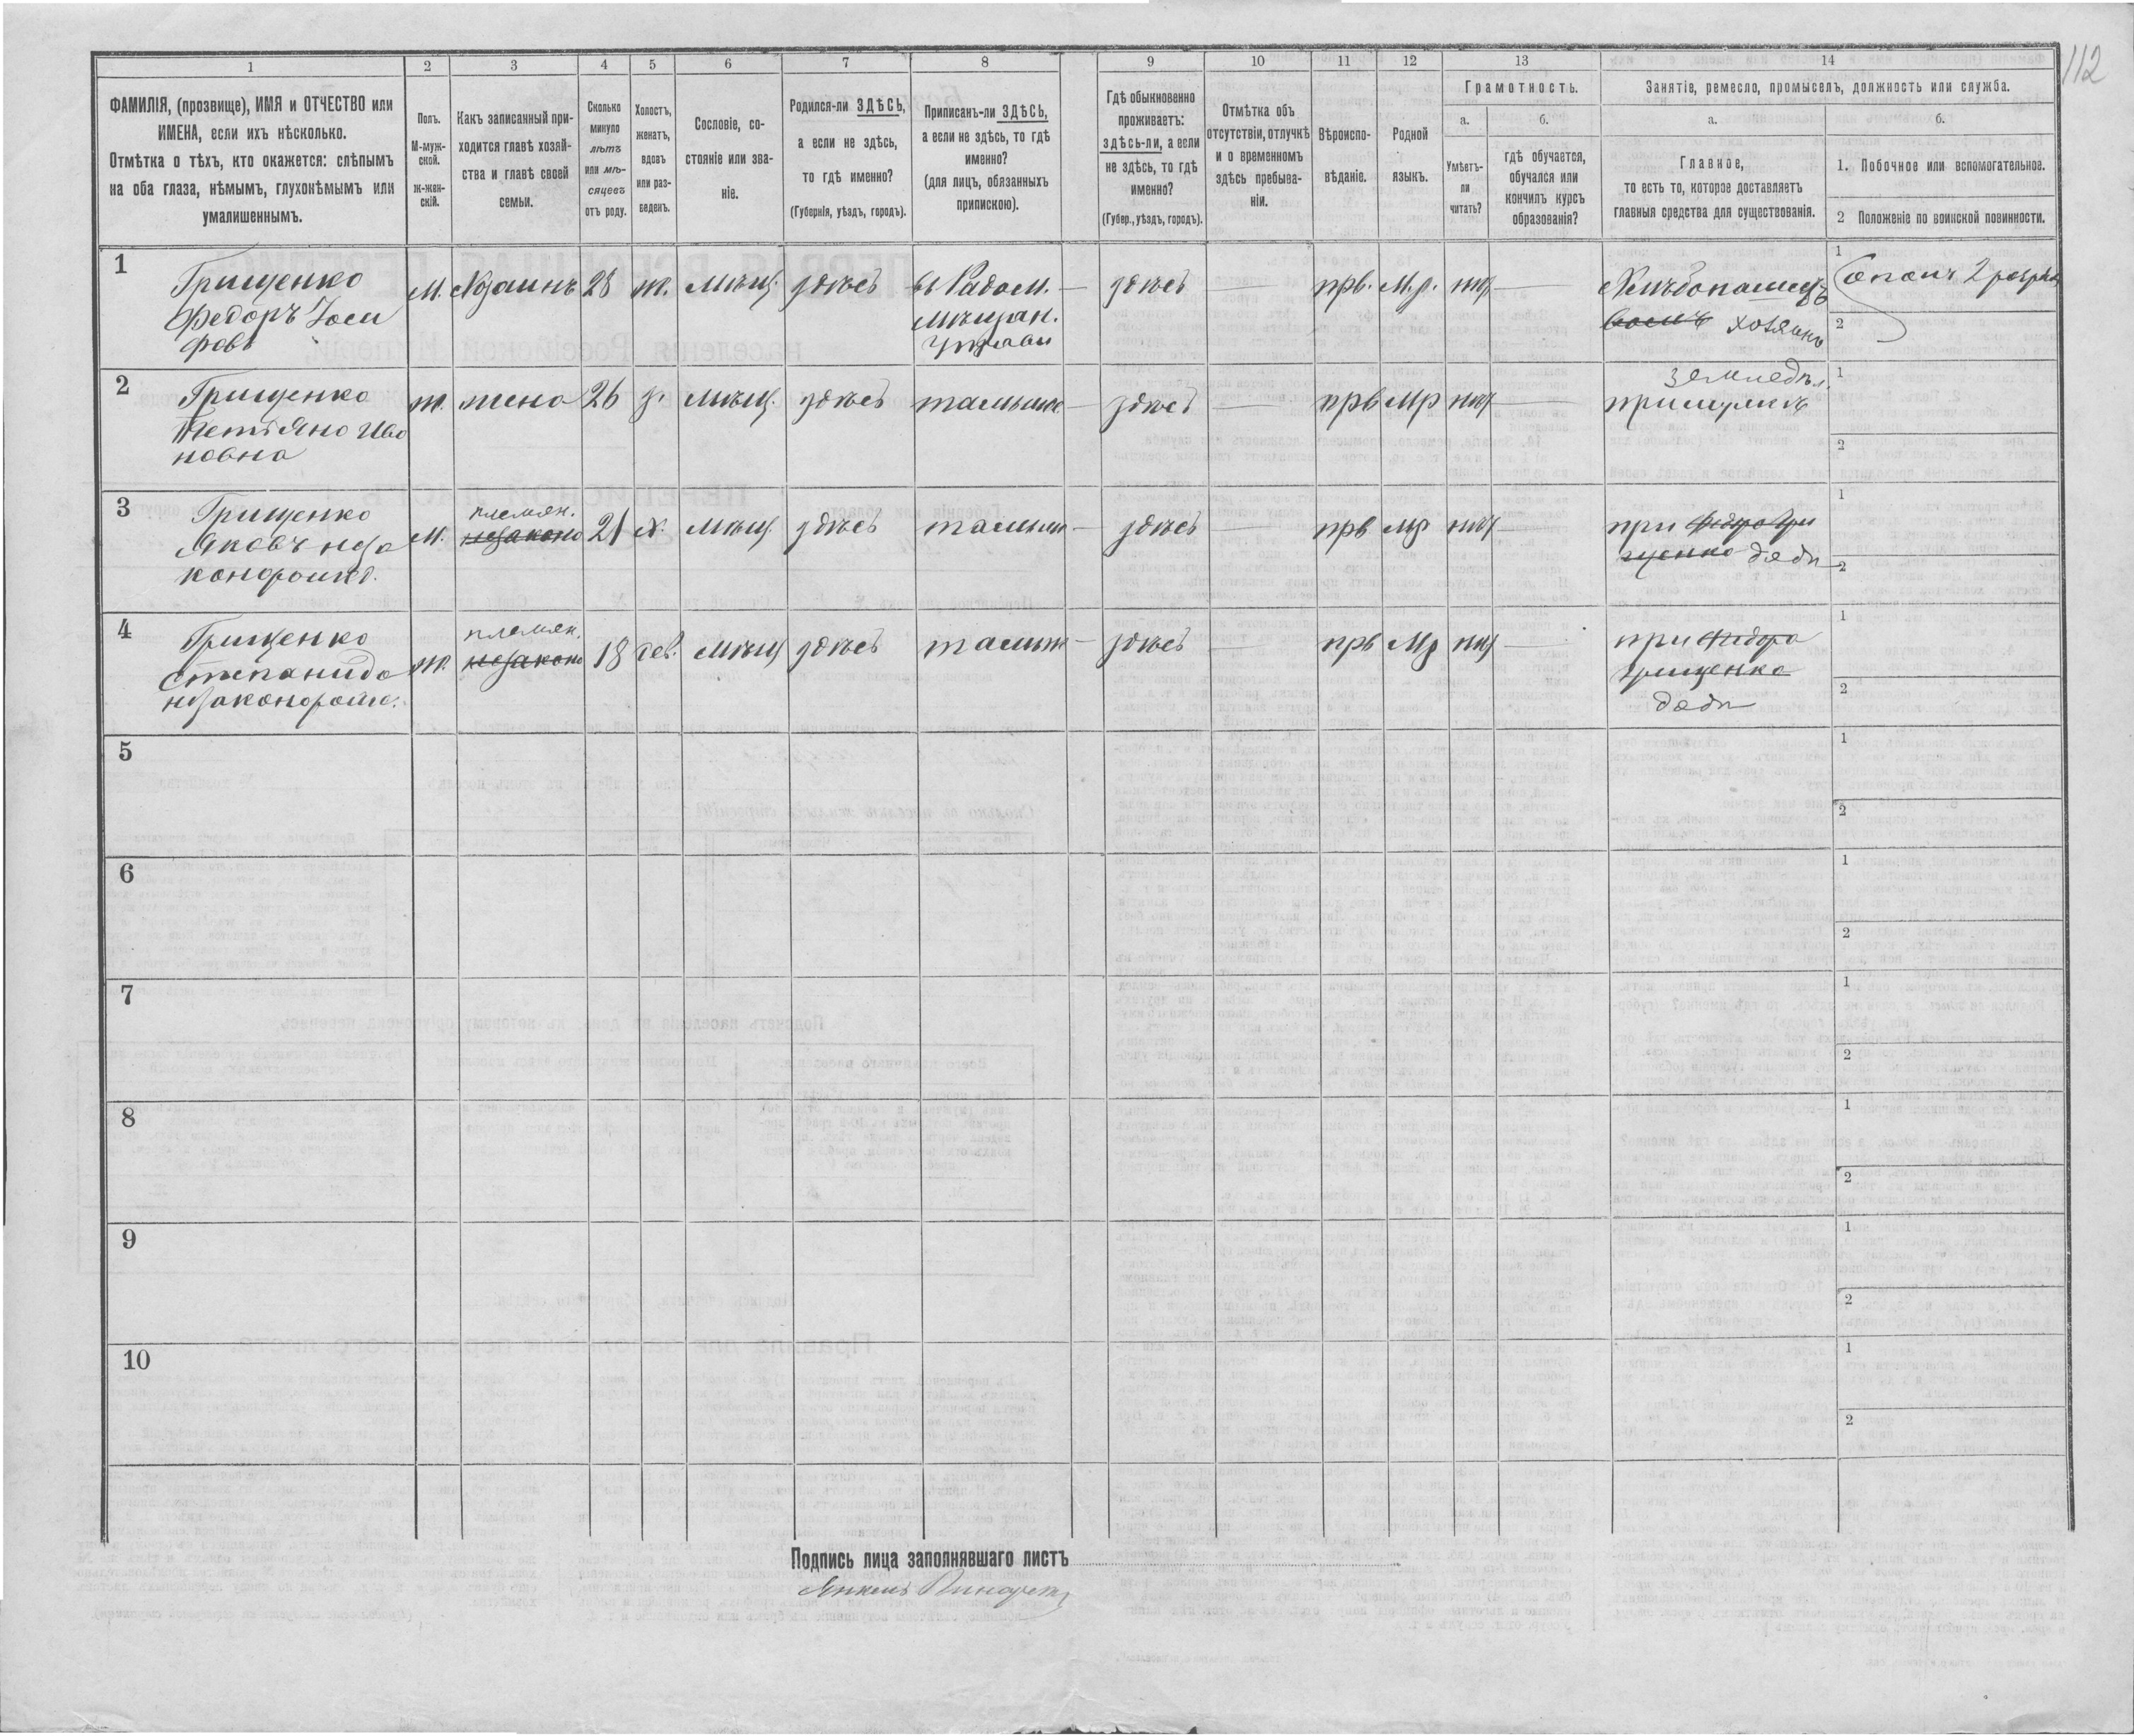 112
1 2 3 4 5 6 7 8 9 10 11 12 13 14
ФАМИЛІЯ, (прозвище), ИМЯ и ОТЧЕСТВО или
ИМЕНА, если ихъ нѣсколько.
Отмѣтка о тѣхъ, кто окажется: слѣпымъ
на оба глаза, нѣмымъ, глухонѣмымъ или
умалишеннымъ.
Полъ.
М-муж-
ской.
ж-жен-
скій.
Какъ записанный при-
ходится главѣ хозяй-
ства и главѣ своей
семьи.
Сколько
минуло
лѣтъ
или мѣ-
сяцевъ
отъ роду.
Холостъ,
женатъ,
вдовъ
или раз-
веденъ.
Сословіе, со-
стояніе или зва-
ніе.
Родился-ли ЗДѢСЬ,
а если не здѣсь,
то гдѣ именно?
(Губернія, уѣздъ, городъ).
Приписанъ-ли ЗДѢСЬ,
а если не здѣсь, то гдѣ
именно?
(для лицъ, обязанныхъ
припискою).
Гдѣ обыкновенно
проживаетъ:
здѣсь-ли, а если
не здѣсь, то гдѣ
именно?
(Губер., уѣздъ, городъ).
Отмѣтка объ
отсутствіи, отлучкѣ
и о временномъ
здѣсь пребыва-
ніи.
Вѣроиспо-
вѣданіе.
Родной
языкъ.
Грамотность.
а.
Умѣетъ-
ли
читать?
б.
гдѣ обучается,
обучался или
кончилъ курсъ
образованія?
Занятіе, ремесло, промыселъ, должность или служба.
а.
Главное,
то есть то, которое доставляетъ
главныя средства для существованія.
б.
1. Побочное или вспомогательное.
2 Положеніе по воинской повинности.
1
Грищенко
Федоръ Іоси
фовъ
м. хозяинъ 28 ж. мѣщ. здѣсь
Радом.
мѣщан.
управы
здѣсь — прв. м.р. нѣт —
Хлѣбопашецъ
хозяинъ
1
2 разряд
2
2
Грищенко
Тетіяна Ива
новна
ж. жена 26 з. мѣщ. здѣсь тамъже — здѣсь — прв мр нѣт —
земледѣл.
при мужѣ
1
2
3
Грищенко
Яковъ неза
конорожд.
м.
племян.
незаконо
21 х. мѣщ. здѣсь тамъже — здѣсь — прв мр нѣт —
при Федора Гри
щенко дядѣ
1
2
4
Грищенко
Степанида
незаконорож.
ж.
племян.
незаконо
18 дев. мѣщ здѣсь тамъже — здѣсь — прв мр нѣт —
при Федора
Грищенко
дядѣ
1
2
5
1
2
6
1
2
7
1
2
8
1
2
9
1
2
10
1
2
Подпись лица заполнявшаго листъ